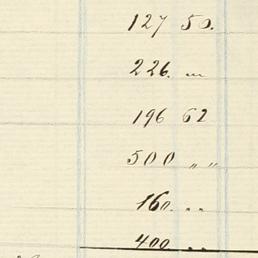 127 50.
226. "
196 62
500 " "
160. " "
400 " "